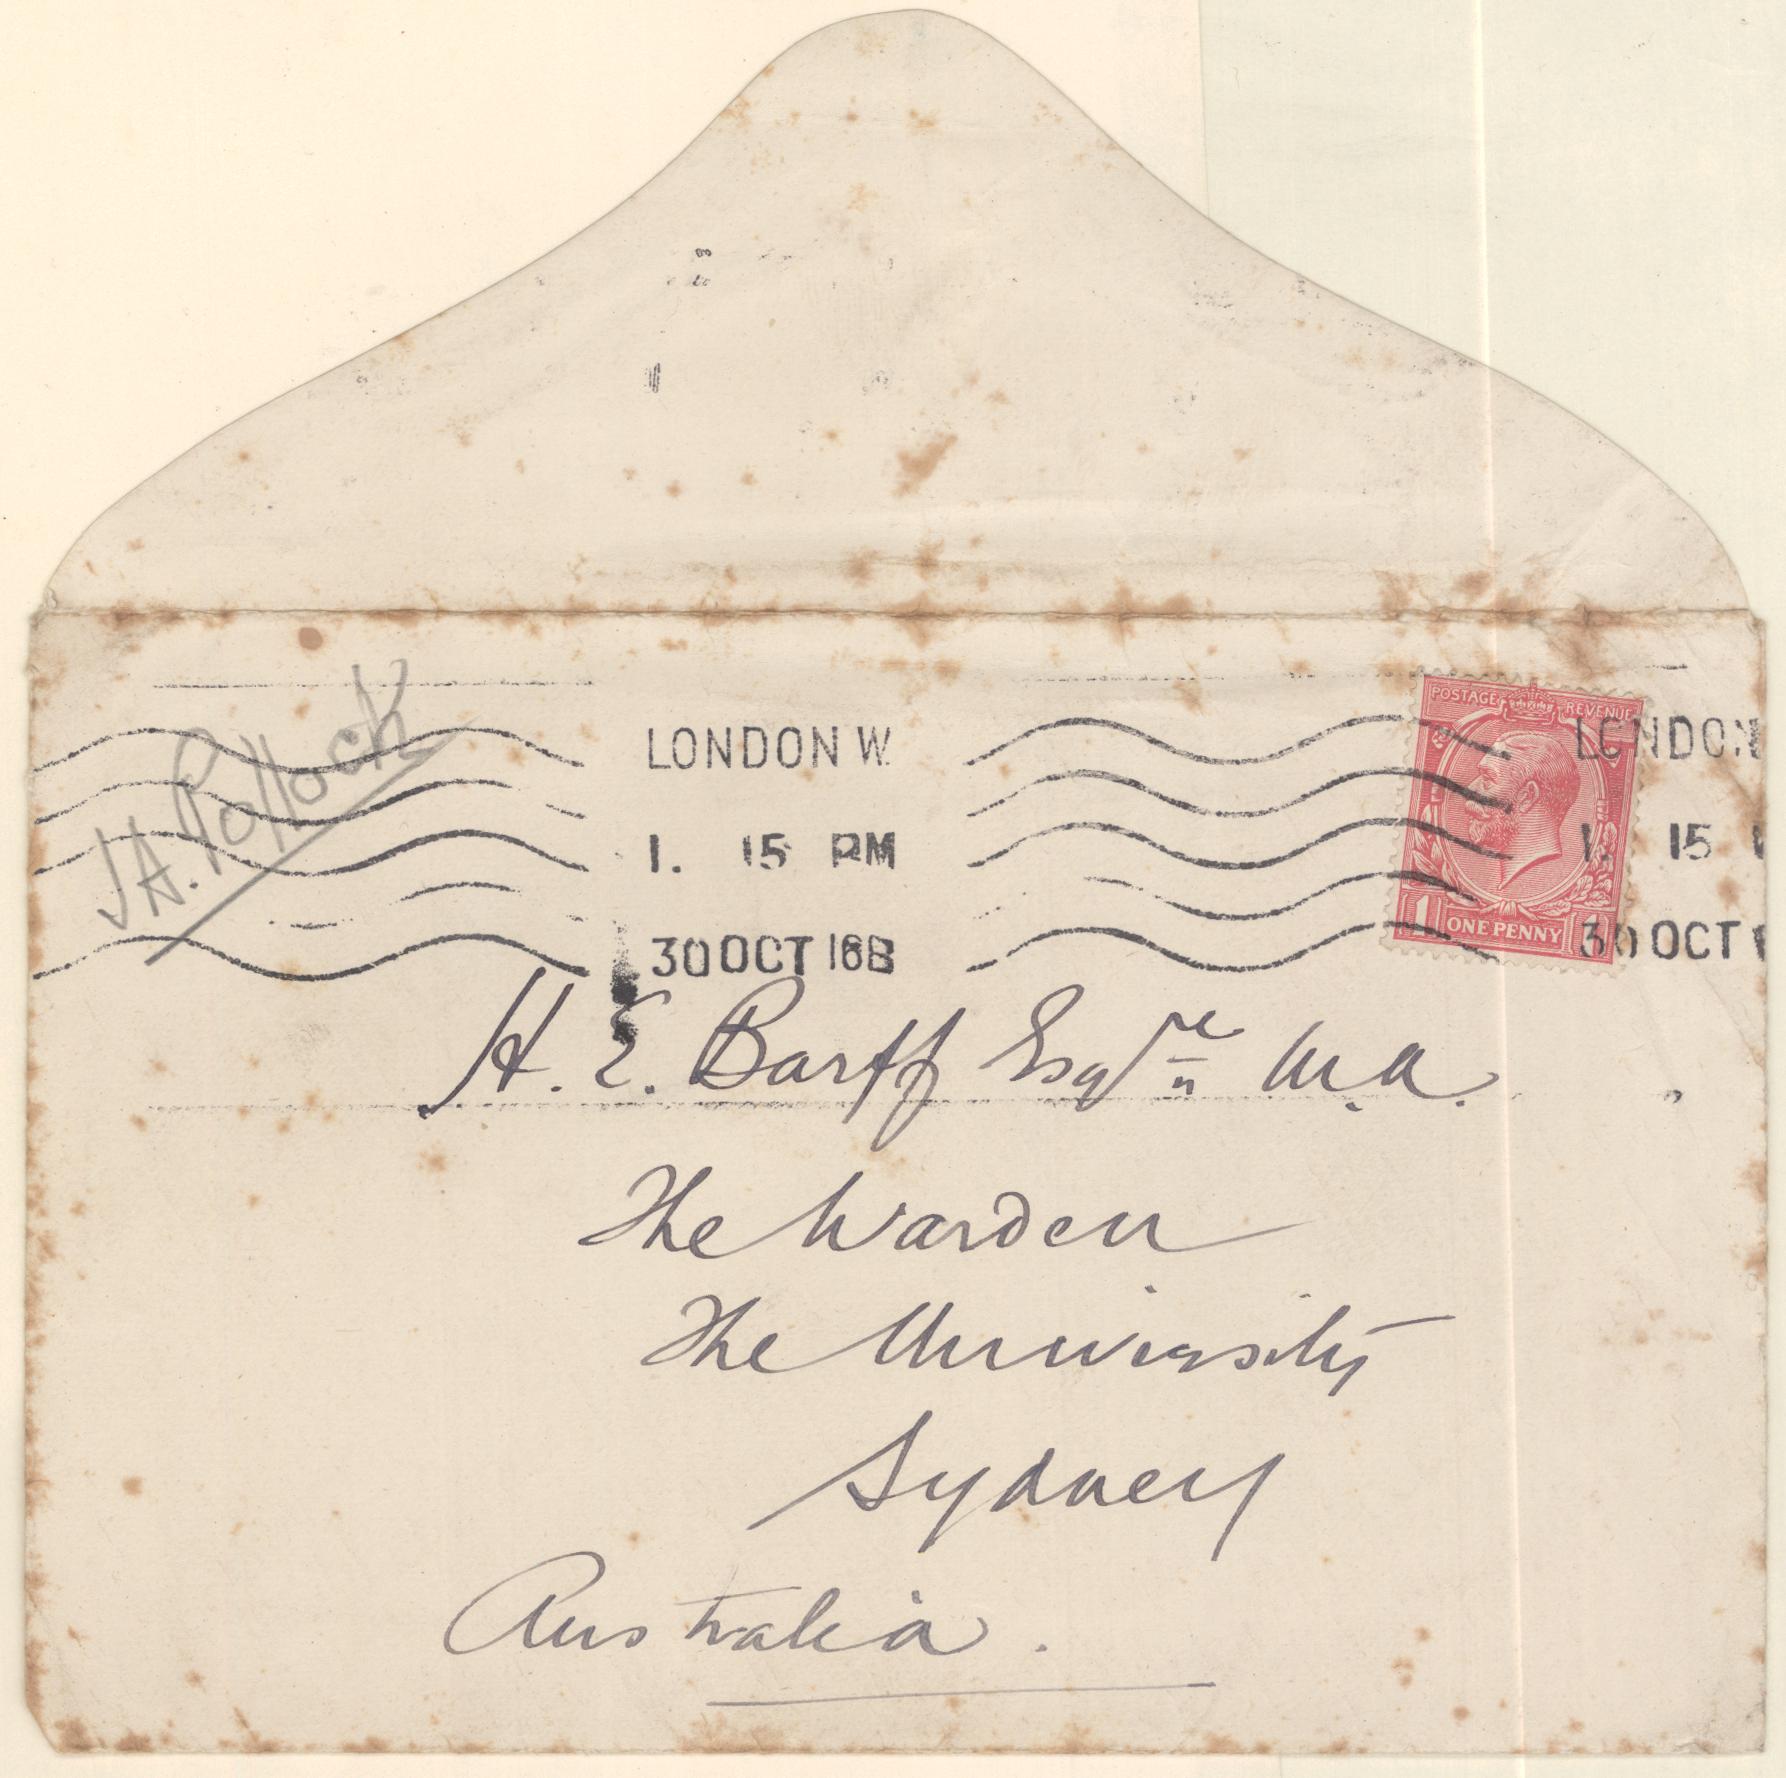 J.A. Pollock
LONDON W.
1. 15 PM
30 OCT 16 B
POSTAGE REVENUE
1 ONE PENNY 1
LONDON
1. 15
30 OCT
H. E. Barff Esqre M.A.
The Warden
The University
Sydney
Australia.